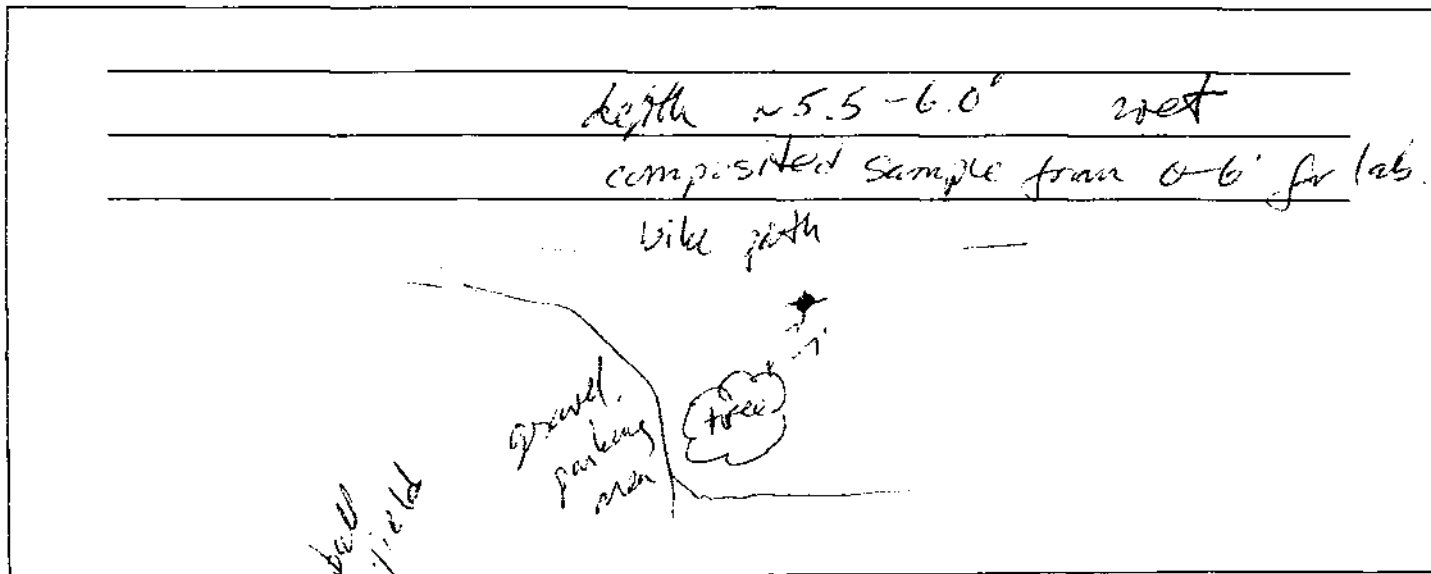 depth ~5.5-6.0' wet
composited sample from 0-6' for lab.
bike path
tree
gravel
parking
area
ball
field